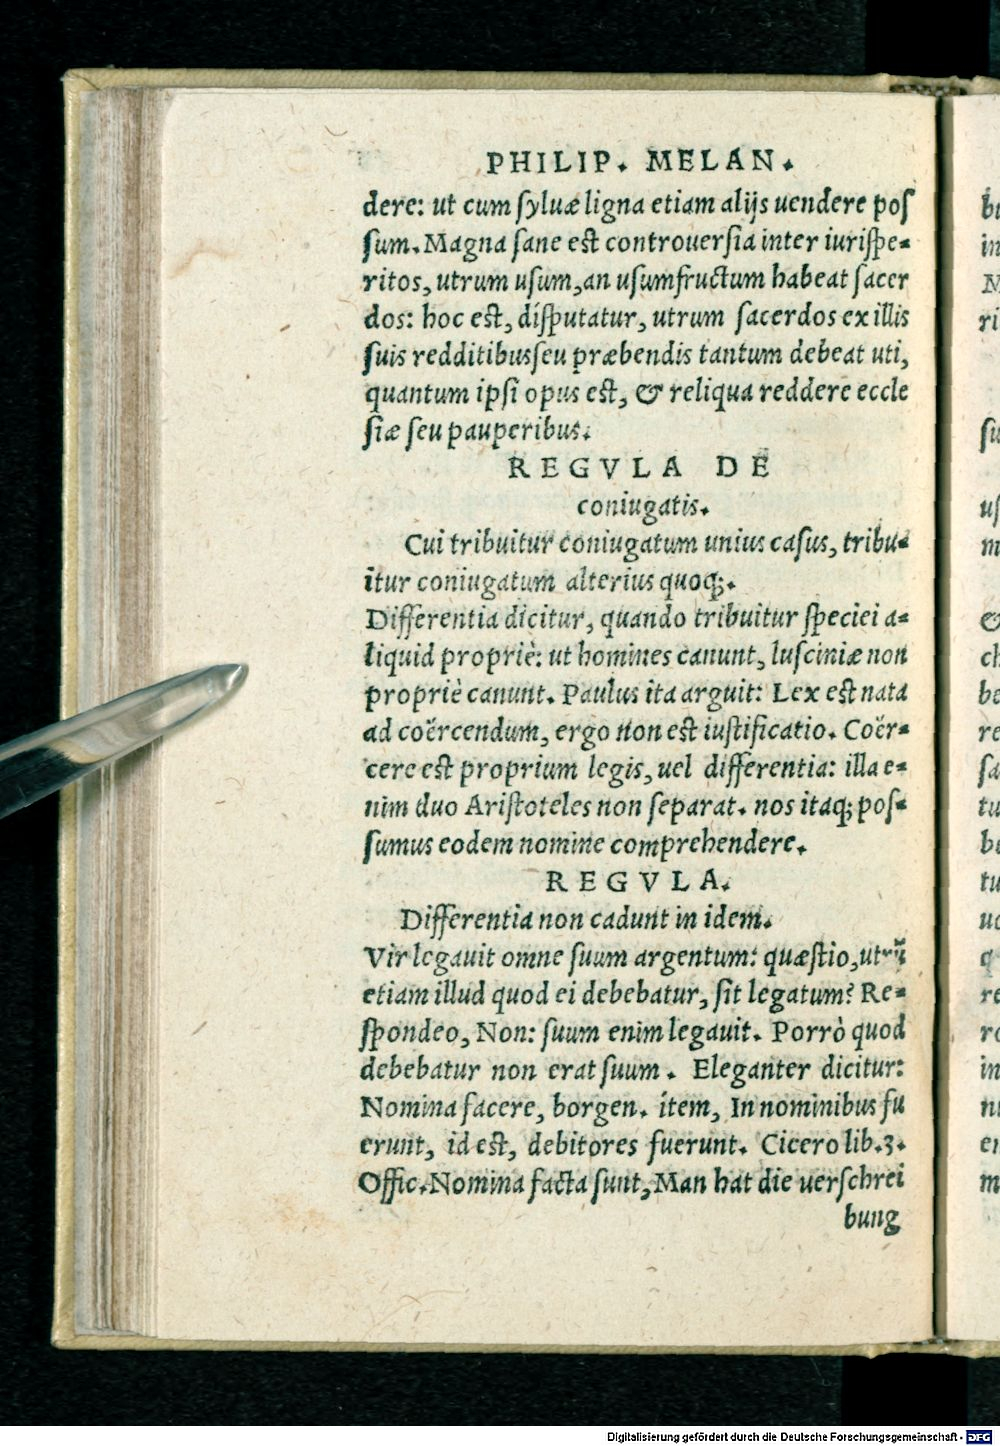 PHILIP. MELAN.
dere: ut cum ſyluæ ligna etiam alijs uendere poſ
ſum. Magna ſane eſt controuerſia inter iuriſpe-
ritos, utrum uſum, an uſumfructum habeat ſacer
dos: hoc eſt, diſputatur, utrum ſacerdos ex illis
ſuis redditibus ſeu præbendis tantum debeat uti,
quantum ipſi opus eſt, & reliqua reddere eccle
ſiæ ſeu pauperibus.
REGVLA DE
coniugatis.
Cui tribuitur coniugatum unius caſus, tribu-
itur coniugatum alterius quoq;.
Differentia dicitur, quando tribuitur ſpeciei a-
liquid propriè: ut homines canunt, luſciniæ non
propriè canunt. Paulus ita arguit: Lex eſt nata
ad coërcendum, ergo non eſt iuſtificatio. Coër-
cere eſt proprium legis, uel differentia: illa e-
nim duo Ariſtoteles non ſeparat. nos itaq; poſ-
ſumus eodem nomine comprehendere.
REGVLA.
Differentia non cadunt in idem.
Vir legauit omne ſuum argentum: quæſtio, utrũ
etiam illud quod ei debebatur, ſit legatum? Re-
ſpondeo, Non: ſuum enim legauit. Porrò quod
debebatur non erat ſuum. Eleganter dicitur:
Nomina facere, borgen. item, In nominibus fu
erunt, id eſt, debitores fuerunt. Cicero lib. 3.
Offic. Nomina facta ſunt, Man hat die uerſchrei
bung
Digitalisierung gefördert durch die Deutsche Forschungsgemeinschaft - DFG